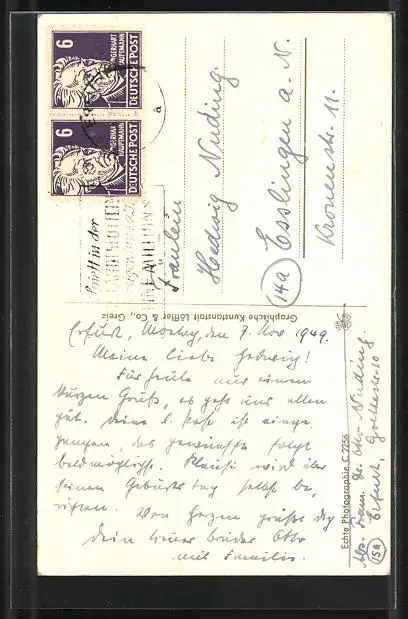 6
GERHART
HAUPTMANN
DEUTSCHE POST
6
GERHART
HAUPTMANN
DEUTSCHE POST
a
spielt in der
Fräulein
Hedwig Nuding
(14a) Esslingen a. N.
Kronenstr. 11.
Graphische Kunstanstalt Löffler & Co., Greiz
Echte Photographie C 2256
Abs. Fam. Dr. Otto Nuding
(15a) Erfurt, Goethestr. 10
Erfurt, Montag, den 7. Nov 1949.
Meine liebe Hedwig!
Für heute nur einen
kurzen Gruß, es geht uns allen
gut. Deine l. Post ist einge-
gangen, das gewünschte folgt
baldmöglichst. Klausi wird über
seinen Geburtstag selbst be-
richten. Von Herzen grüßt Dich
Dein treuer Bruder Otto
mit Familie.